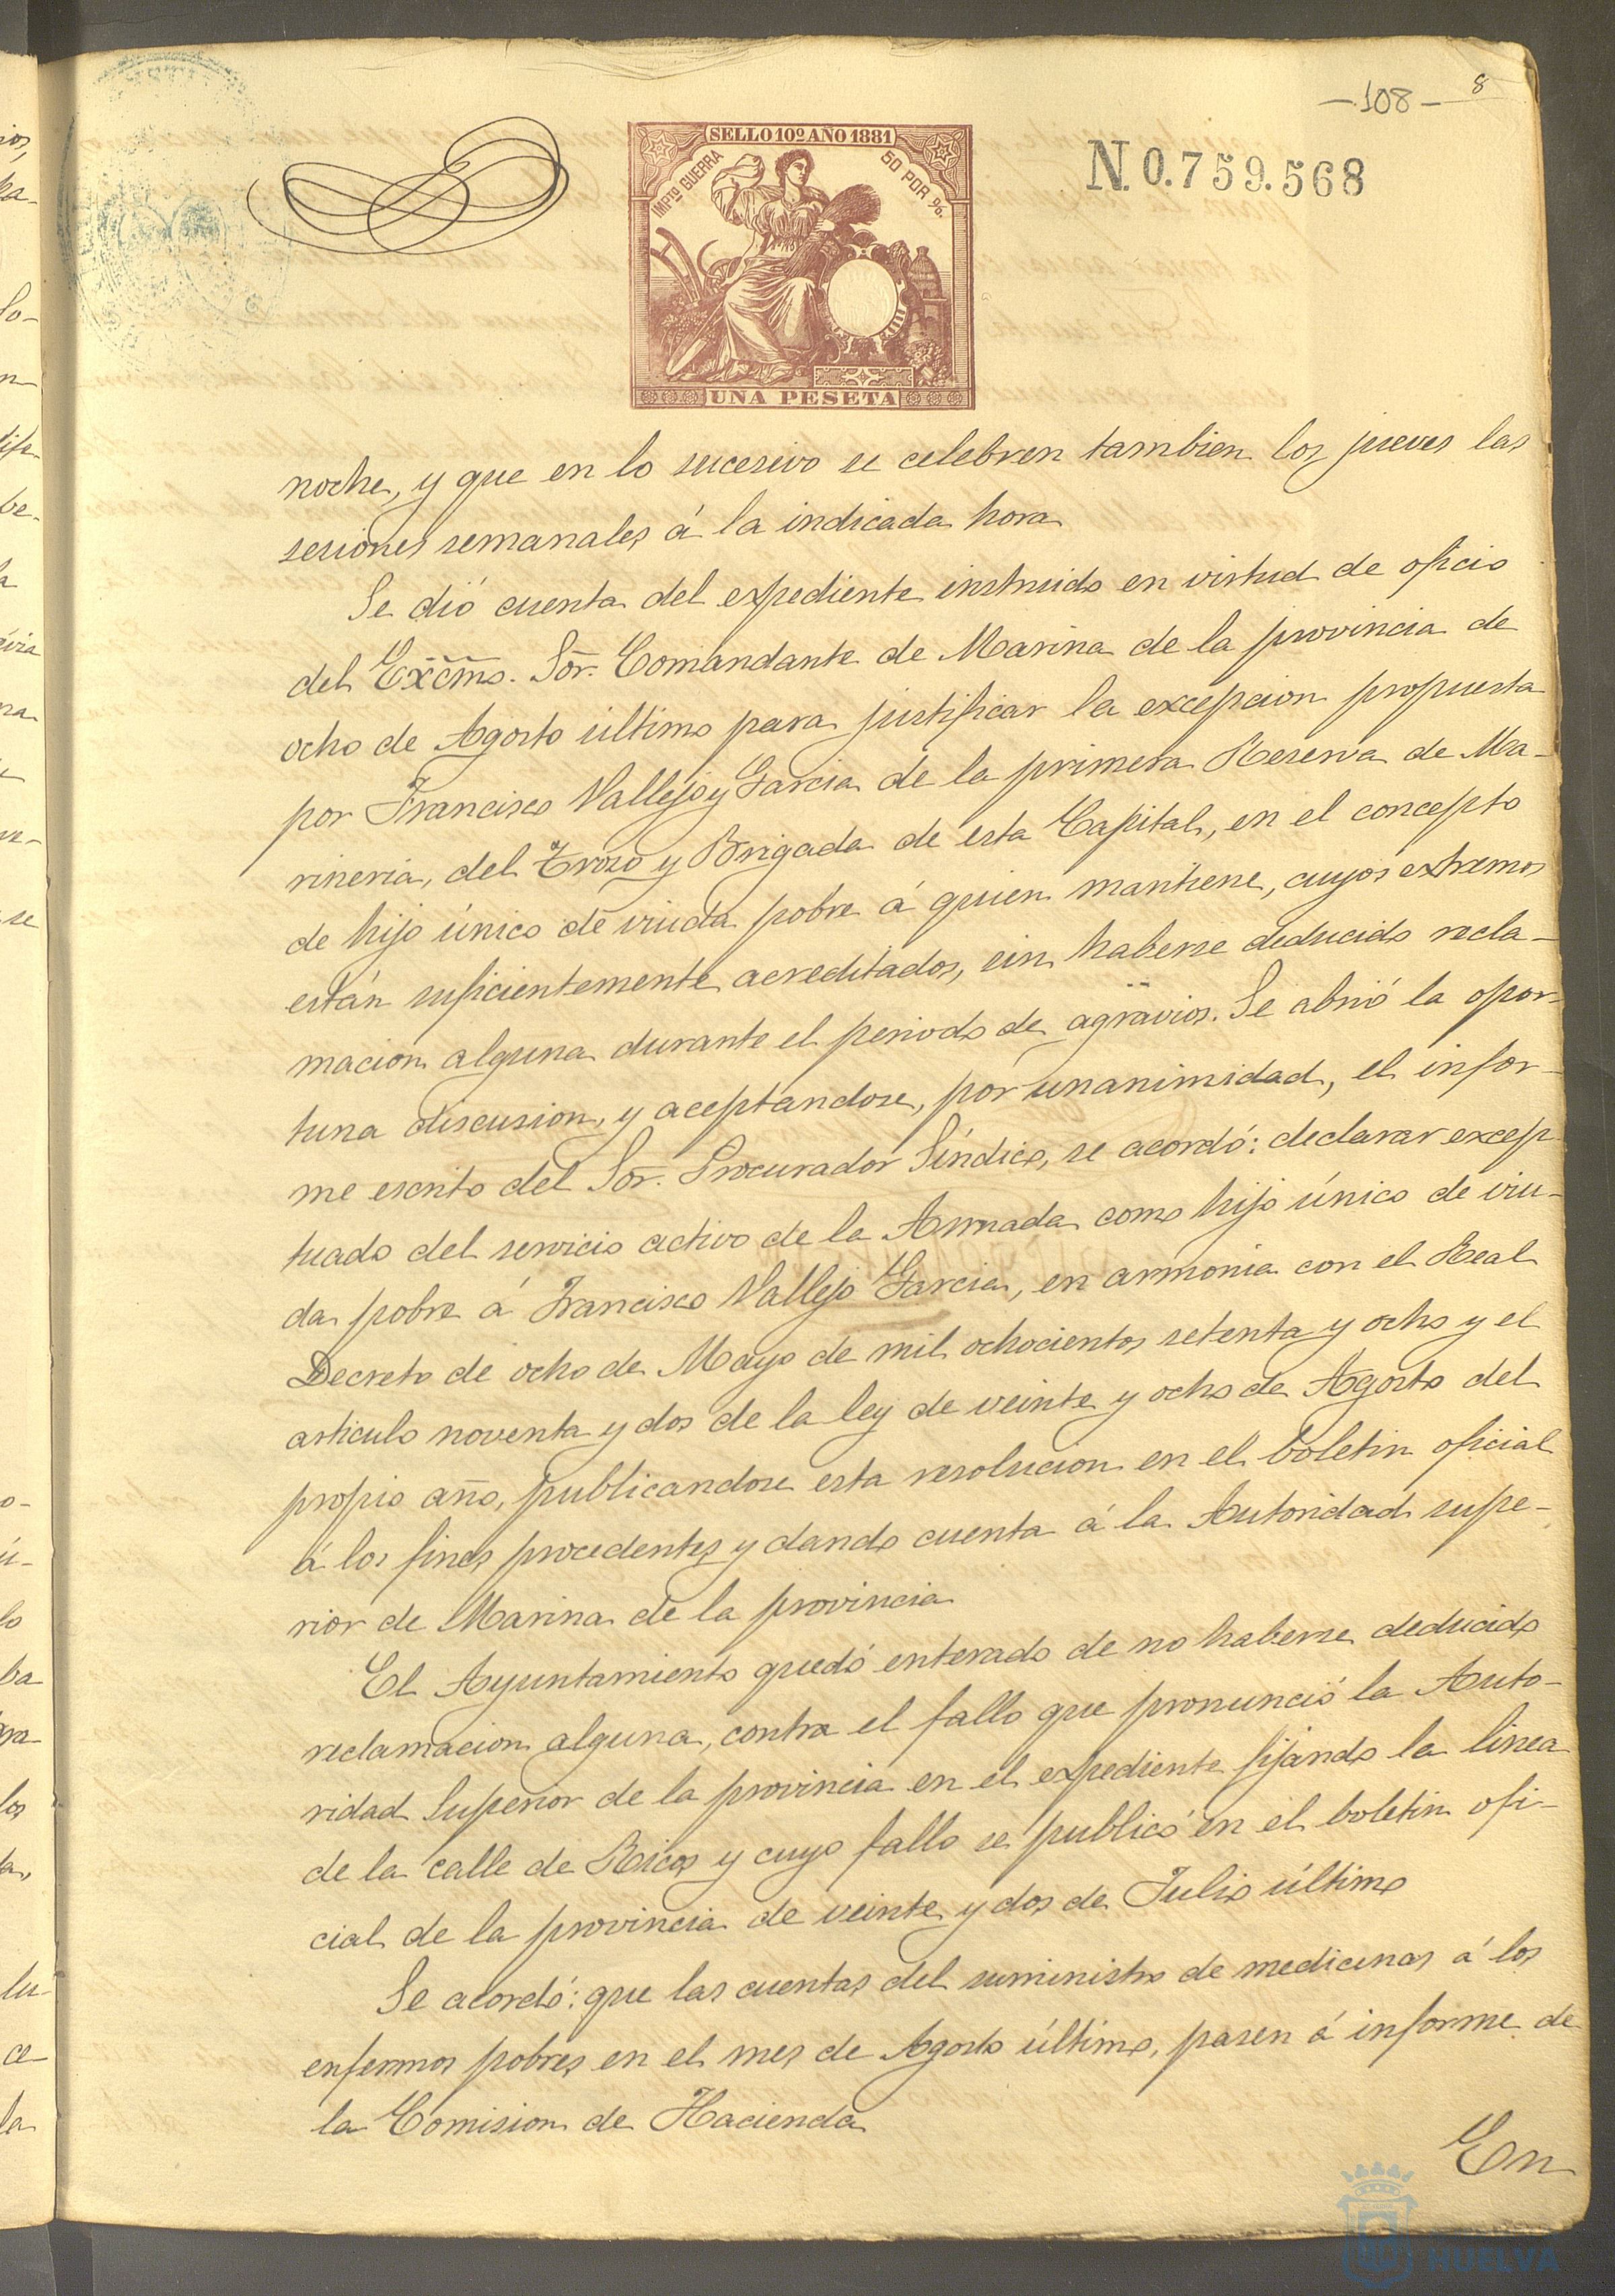 -108- 8
SELLO 10º AÑO 1881
IMPTO GUERRA 50 POR %.
N. 0.759.568
UNA PESETA
noche, y que en lo sucesivo se celebren tambien los jueves las
sesiones semanales á la indicada hora
Se dió cuenta del expediente instruido en virtud de oficio
del Excmo. Sor. Comandante de Marina de la provincia de
ocho de Agosto último para justificar la excepcion propuesta
por Francisco Vallejo y Garcia de la primera Reserva de Ma-
rineria, del Trozo y Brigada de esta Capital, en el concepto
de hijo único de viuda pobre á quien mantiene, cuyos extremos
están suficientemente acreditados, sin haberse deducido recla-
macion alguna durante el periodo de agravios. Se abrió la opor-
tuna discusion, y aceptandose, por unanimidad, el infor-
me escrito del Sor. Procurador Síndico, se acordó: declarar excep-
tuado del servicio activo de la Armada como hijo único de viu-
da pobre á Francisco Vallejo Garcia, en armonia con el Real
Decreto de ocho de Mayo de mil ochocientos setenta y ocho y el
articulo noventa y dos de la ley de veinte y ocho de Agosto del
propio año, publicandose esta resolucion en el boletin oficial
á los fines procedentes y dando cuenta á la Autoridad supe-
rior de Marina de la provincia
El Ayuntamiento quedó enterado de no haberse deducido
reclamacion alguna, contra el fallo que pronunció la Auto-
ridad Superior de la provincia en el expediente fijando la linea
de la calle de Ricos y cuyo fallo se publicó en el boletin ofi-
cial de la provincia de veinte y dos de Julio último
Se acordó: que las cuentas del suministro de medicinas á los
enfermos pobres en el mes de Agosto último, pasen á informe de
la Comision de Hacienda
En
HUELVA